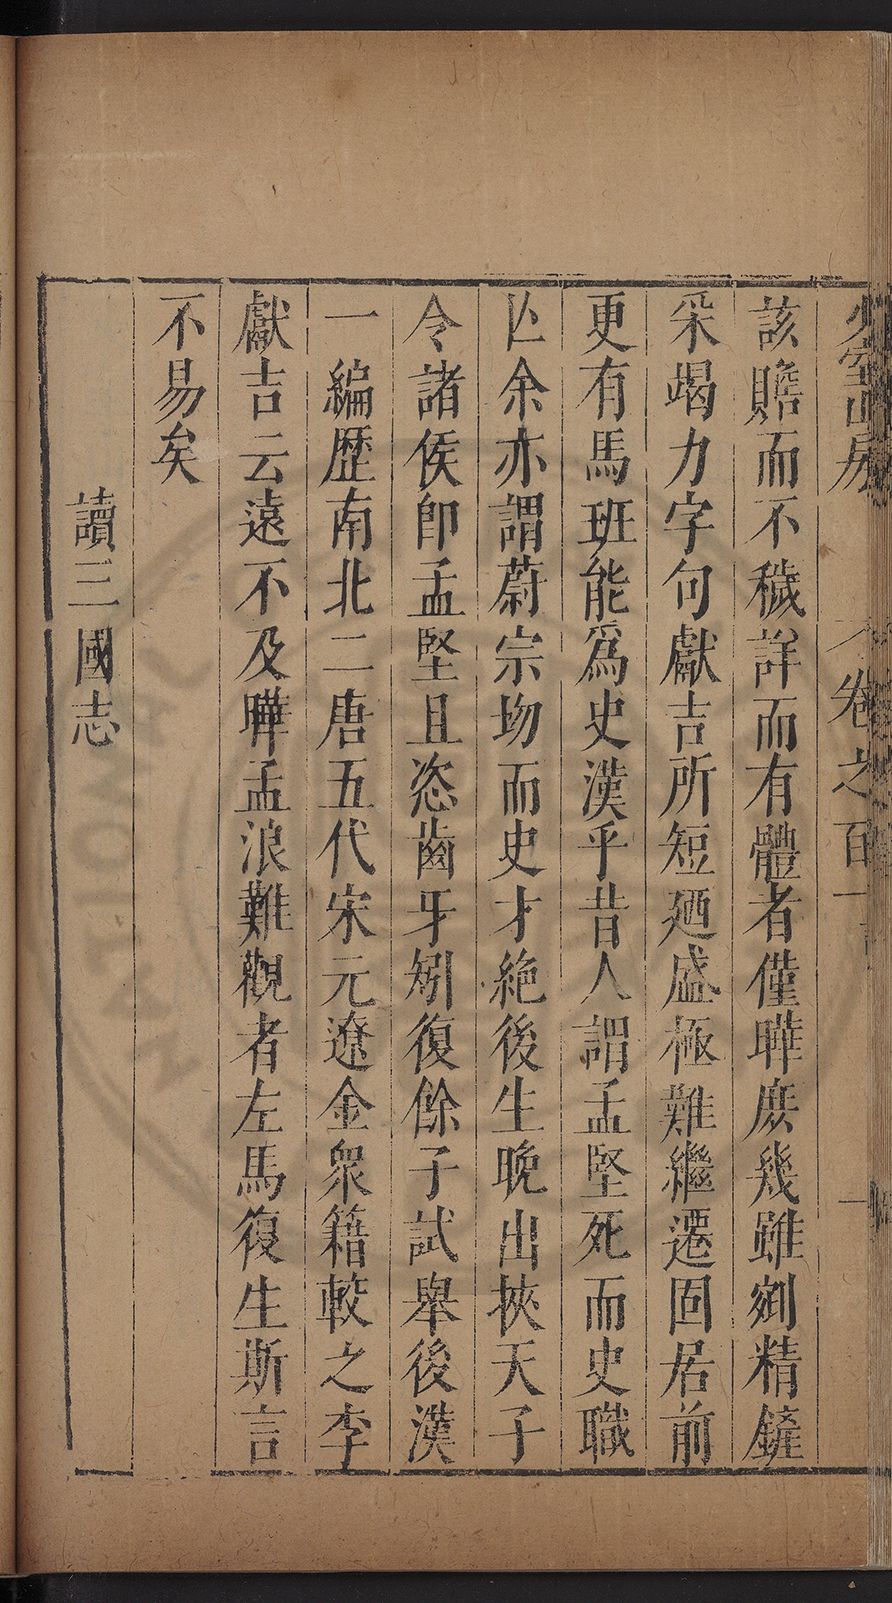 少室山房
卷之百一
一
該贍而不穢詳而有體者僅曄庶幾雖剜精鏟
采竭力字句獻吉所短廼盛極難繼遷固居前
更有馬班能爲史漢乎昔人謂孟堅死而史職
亾余亦謂蔚宗歾而史才絶後生晚出挾天子
令諸侯即孟堅且恣齒牙矧復餘子試舉後漢
一編歷南北二唐五代宋元遼金衆籍較之李
獻吉云遠不及曄孟浪難觀者左馬復生斯言
不易矣
讀三國志